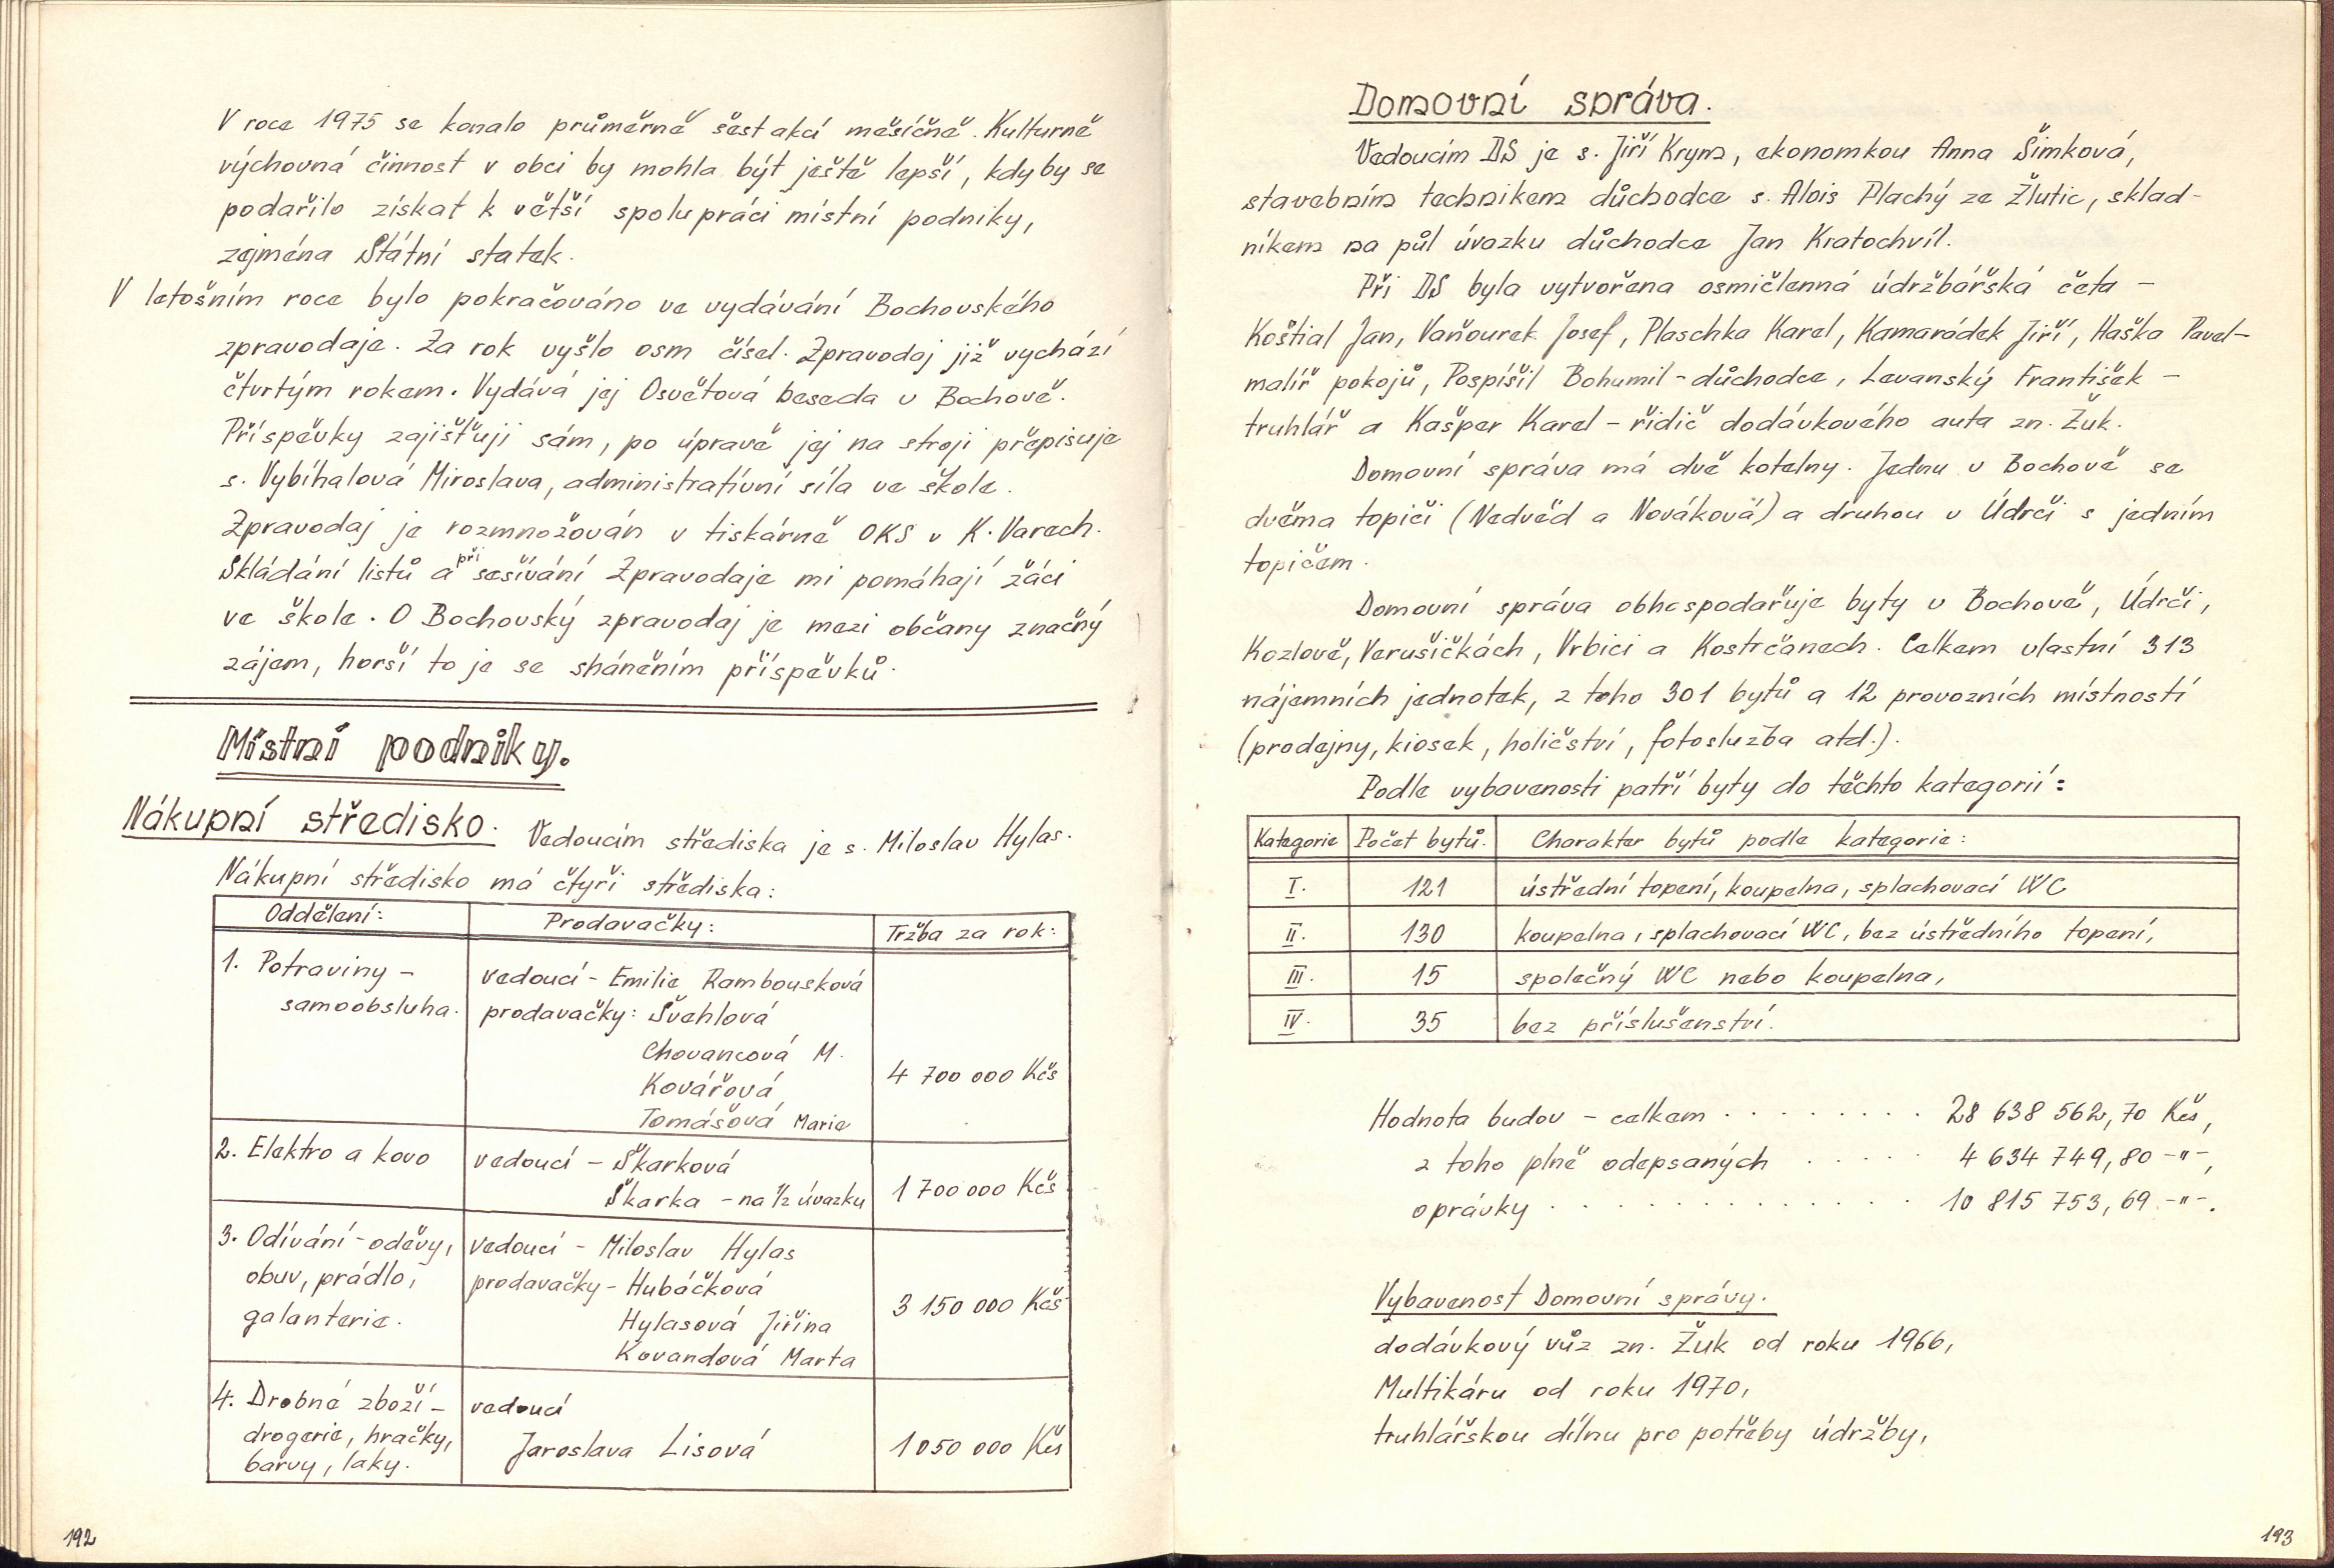 V roce 1975 se konalo průměrně šest akcí měsíčně. Kulturně
výchovná činnost v obci by mohla být ještě lepší, kdyby se
podařilo získat k větší spolupráci místní podniky,
zejména Státní statek.
V letošním roce bylo pokračováno ve vydávání Bochovského
zpravodaje. Za rok vyšlo osm čísel. Zpravodaj již vychází
čtvrtým rokem. Vydává jej Osvětová beseda v Bochově.
Příspěvky zajišťuji sám, po úpravě jej na stroji přepisuje
s. Vybíhalová Miroslava, administratívní síla ve škole.
Zpravodaj je rozmnožován v tiskárně OKS v K. Varech.
Skládání listů a při sešívání Zpravodaje mi pomáhají žáci
ve škole. O Bochovský zpravodaj je mezi občany značný
zájem, horší to je se sháněním příspěvků.
Místní podniky.
Nákupní středisko. Vedoucím střediska je s. Miloslav Hylas.
Nákupní středisko má čtyři střediska:
Oddělení: Prodavačky: Tržba za rok:
1. Potraviny - vedoucí - Emilie Rambousková
samoobsluha. prodavačky: Švehlová
Chovancová M.
Kovářová 4 700 000 Kčs
Tomášová Marie
2. Elektro a kovo vedoucí - Škarková
Škarka - na 1/2 úvazku 1 700 000 Kčs
3. Odívání - oděvy, vedoucí - Miloslav Hylas
obuv, prádlo, prodavačky - Hubáčková
galanterie. Hylasová Jiřina 3 150 000 Kčs
Kovandová Marta
4. Drobné zboží - vedoucí
drogerie, hračky, Jaroslava Lisová 1 050 000 Kčs
barvy, laky.
192
Domovní správa.
Vedoucím DS je s. Jiří Krym, ekonomkou Anna Šimková,
stavebním technikem důchodce s. Alois Plachý ze Žlutic, sklad-
níkem na půl úvazku důchodce Jan Kratochvíl.
Při DS byla vytvořena osmičlenná údržbářská četa -
Koštial Jan, Vaňourek Josef, Plaschka Karel, Kamarádek Jiří, Haška Pavel-
malíř pokojů, Pospíšil Bohumil - důchodce, Levanský František -
truhlář a Kašper Karel - řidič dodávkového auta zn. Žuk.
Domovní správa má dvě kotelny. Jednu v Bochově se
dvěma topiči (Nedvěd a Nováková) a druhou v Údrči s jedním
topičem.
Domovní správa obhospodařuje byty v Bochově, Údrči,
Kozlově, Verušičkách, Vrbici a Kostrčanech. Celkem vlastní 313
nájemních jednotek, z toho 301 bytů a 12 provozních místností
(prodejny, kiosek, holičství, fotosluzba atd.).
Podle vybavenosti patří byty do těchto kategorií:
Kategorie Počet bytů. Charakter bytů podle kategorie:
I. 121 ústřední topení, koupelna, splachovací WC
II. 130 koupelna, splachovací WC, bez ústředního topení,
III. 15 společný WC nebo koupelna,
IV. 35 bez příslušenství.
Hodnota budov - celkem . . . . . . . . . 28 638 562,70 Kčs,
z toho plně odepsaných . . . . . 4 634 749,80 -"-,
oprávky . . . . . . . . . . . . 10 815 753,69 -"-.
Vybavenost Domovní správy.
dodávkový vůz zn. Žuk od roku 1966,
Multikáru od roku 1970,
truhlářskou dílnu pro potřeby údržby,
193